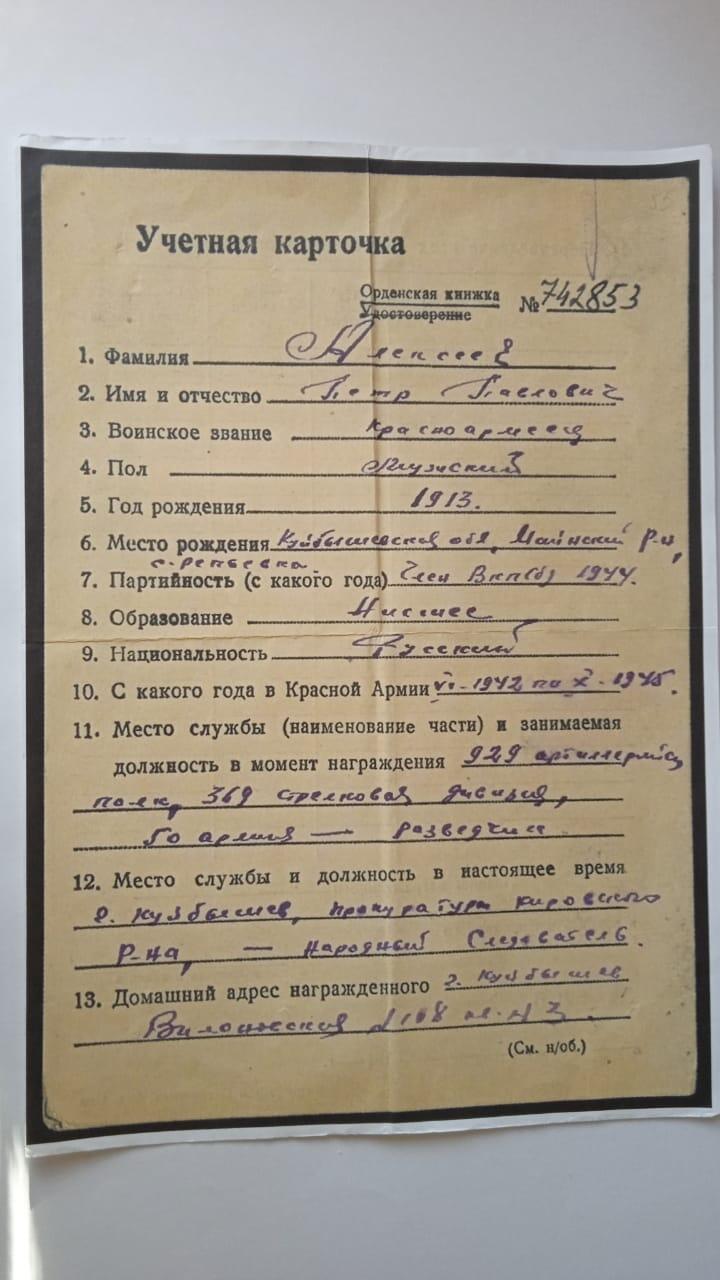 Учетная карточка
Орденская книжка
Удостоверение
№ 742853
1. Фамилия Алексеев
2. Имя и отчество Петр Павлович
3. Воинское звание красноармеец
4. Пол Мужский
5. Год рождения 1913.
6. Место рождения Куйбышевская обл, Майнский р-н,
с. Репьевка
7. Партийность (с какого года) Член Вкп(б) 1944.
8. Образование Низшее
9. Национальность Русский
10. С какого года в Красной Армии VI-1942 по X-1945.
11. Место службы (наименование части) и занимаемая
должность в момент награждения 929 артиллерийс
полк, 369 стрелковая дивизия,
50 армия — разведчик
12. Место службы и должность в настоящее время
г. Куйбышев, прокуратура кировского
р-на, — народный Следователь.
13. Домашний адрес награжденного г. Куйбышев
(См. н/об.)